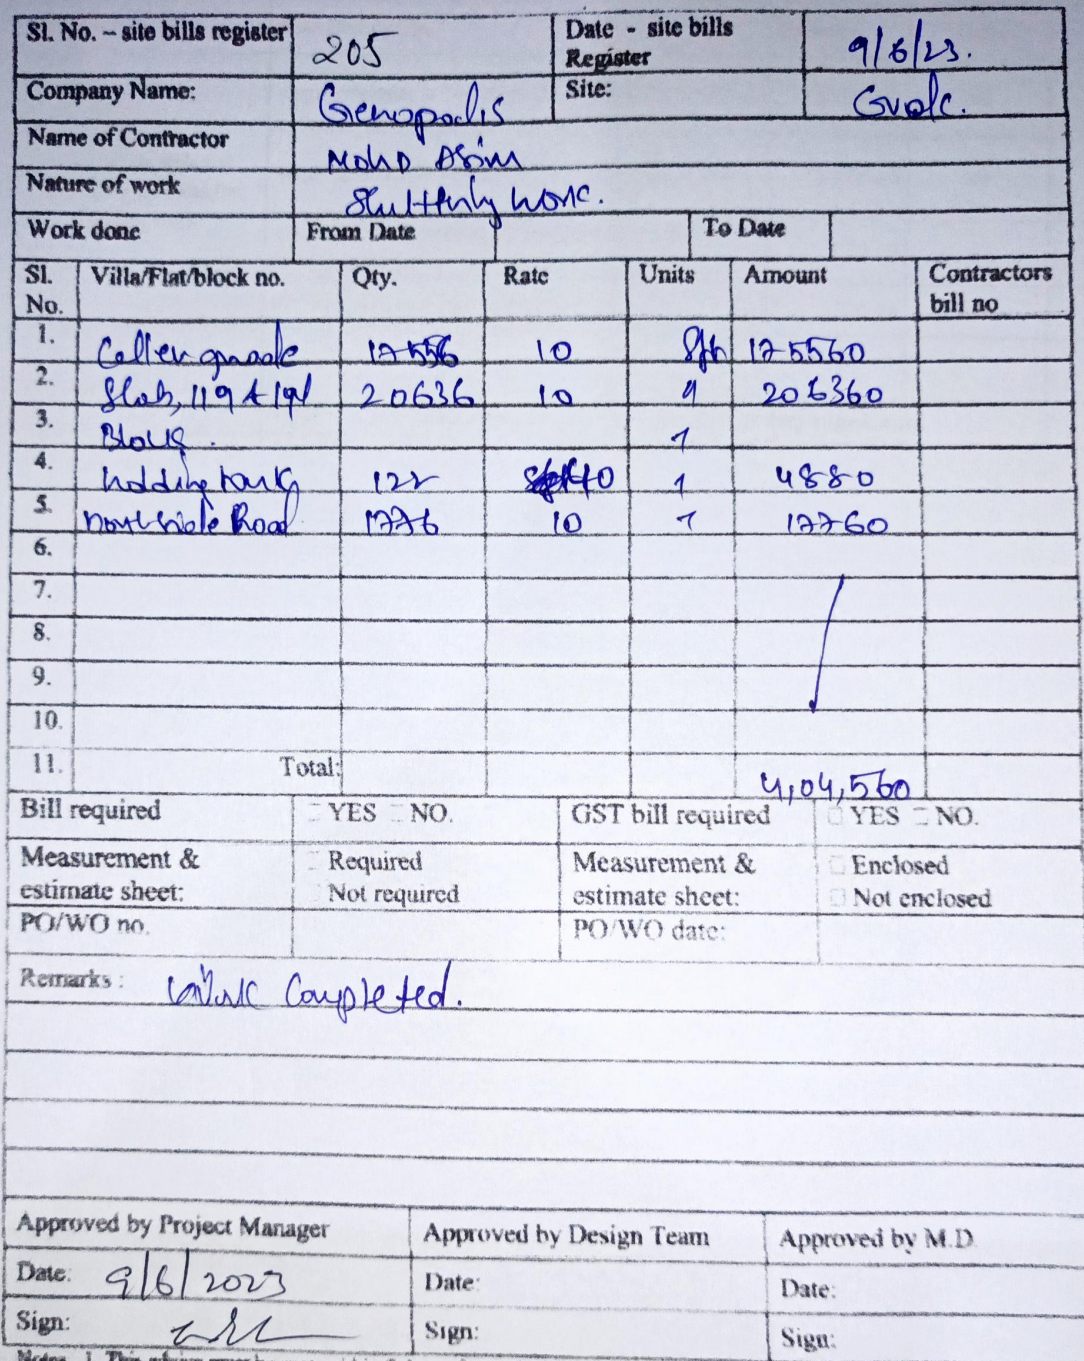 Sl. No. – site bills register 205 Date - site bills Register 9/6/23.
Company Name: Genopolis Site: Gvdc.
Name of Contractor Mohd Asim
Nature of work Shuttering work.
Work done From Date To Date
Sl. No. Villa/Flat/block no. Qty. Rate Units Amount Contractors bill no
1. Celler 17556 10 Sft 175560
2. Slab, 119 & 191 20636 10 " 206360
3. Block. "
4. holding tank 122 40 " 4880
5. North side Road 1776 10 " 17760
6.
7.
8.
9.
10.
11. Total: 4,04,560
Bill required YES NO. GST bill required YES NO.
Measurement & estimate sheet: Required Not required Measurement & estimate sheet: Enclosed Not enclosed
PO/WO no. PO/WO date:
Remarks : Work Completed.
Approved by Project Manager Approved by Design Team Approved by M.D.
Date: 9/6/2023 Date: Date:
Sign: Sign: Sign: